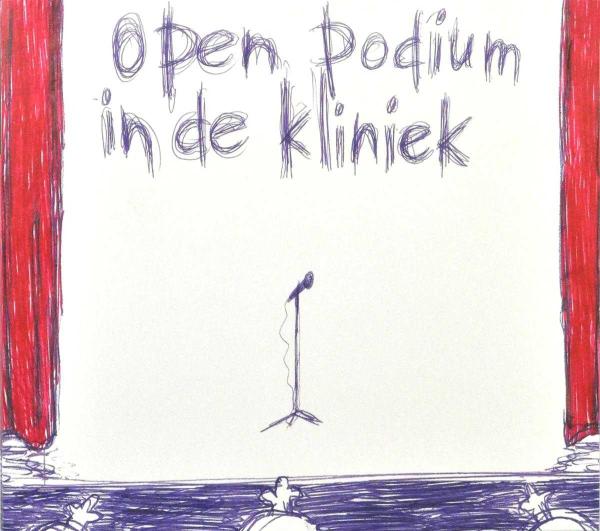 Open Podium
in de kliniek